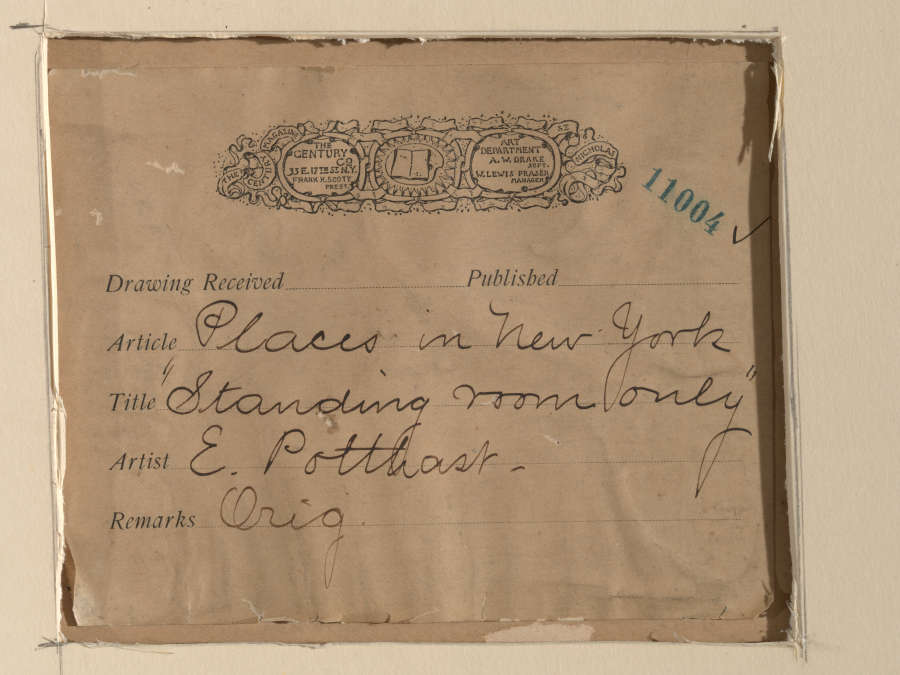 THE CENTURY MAGAZINE
THE
CENTURY Co
33 E. 17TH ST. N.Y.
FRANK H. SCOTT
PREST.
ART
DEPARTMENT
A. W. DRAKE
SUPT.
W. LEWIS FRASER
MANAGER
ST NICHOLAS
11004
Drawing Received Published
Article Places in New York
Title "Standing room only"
Artist E. Potthast.
Remarks Orig.